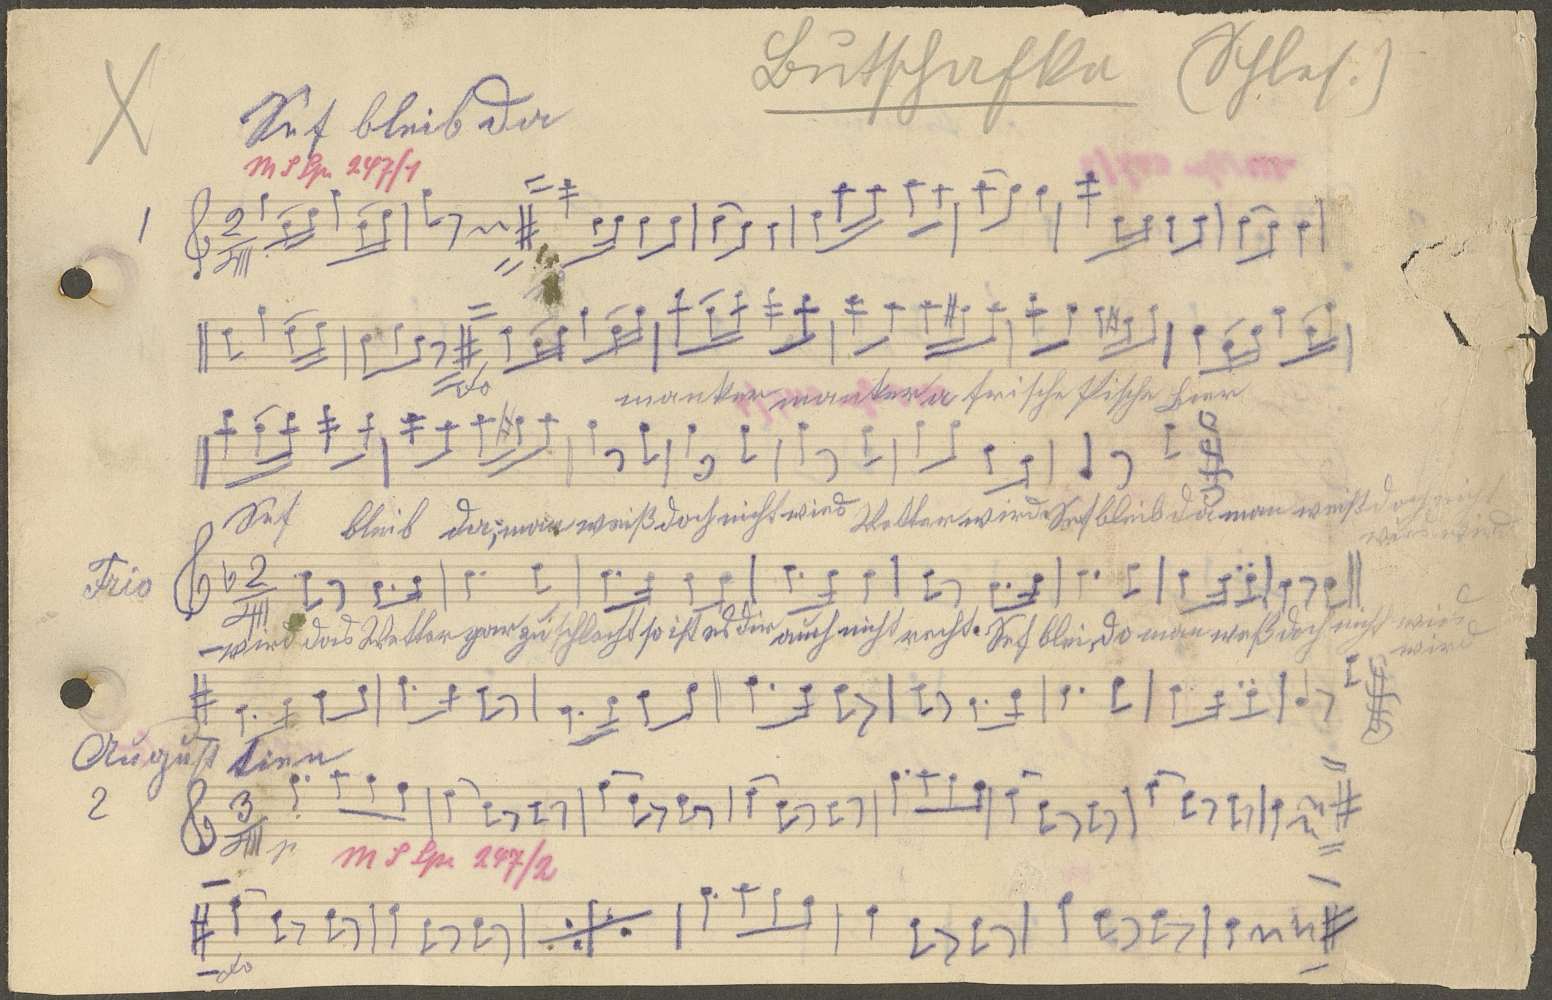 Butschafka (Schles.)
X
Sef bleib da
M S Spr 247/1
1
2
manker manker a frische Pische Bier
Sef bleib da, man weiß doch nicht wies Wetter wird Sef bleib da man weißt doch nicht
wies wird
Trio 2
wird das Wetter gar zu schlecht so ist es dir auch nicht recht. Sef bleib da man weß doch nicht wies
wird
Augustien
2
3
p
M S Spr 247/2